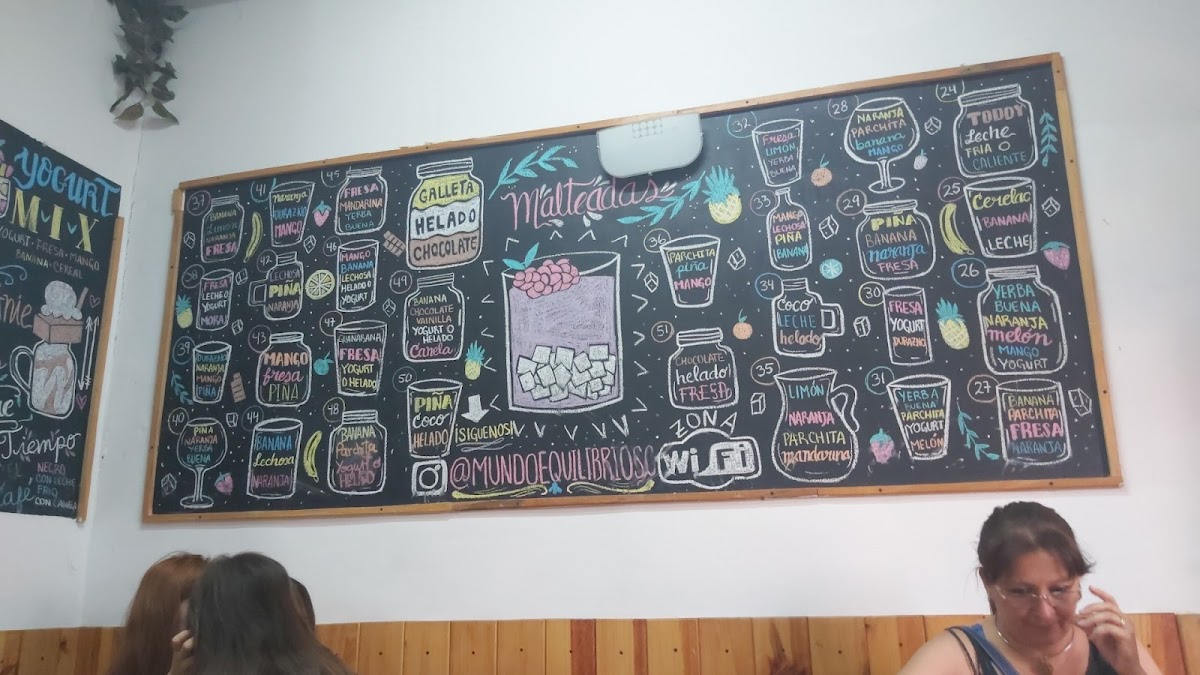 YOGURT
MIX
YOGURT · FRESA · MANGO
BANANA · CEREAL
Tiempo
NEGRO
CON LECHE
FRIO
CON CANELA
Malteadas
GALLETA
HELADO
CHOCOLATE
37
BANANA
NARANJA
FRESA
41
Naranja
DURAZNO
MANGO
45
FRESA
MANDARINA
YERBA
BUENA
38
FRESA
LECHE O
YOGURT
MORA
42
LECHOSA
PIÑA
NARANJA
46
MANGO
BANANA
LECHOSA
HELADO
YOGURT
49
BANANA
CHOCOLATE
VAINILLA
YOGURT O
HELADO
Canela
39
DURAZNO
NARANJA
MANGO
PIÑA
43
MANGO
fresa
PIÑA
47
GUANABANA
FRESA
YOGURT
O HELADO
50
PIÑA
COCO
HELADO
40
PIÑA
NARANJA
YERBA
BUENA
44
BANANA
Lechosa
NARANJA
48
BANANA
Parchita
Yogurt O
HELADO
36
PARCHITA
piña
MANGO
51
CHOCOLATE
helado
FRESA
32
Fresa
LIMÓN
YERBA
BUENA
33
MANGO
LECHOSA
PIÑA
BANANA
34
COCO
LECHE
helado
35
LIMÓN
NARANJA
PARCHITA
mandarina
28
NARANJA
PARCHITA
banana
MANGO
29
PIÑA
BANANA
naranja
FRESA
30
FRESA
YOGURT
DURAZNO
31
YERBA
BUENA
PARCHITA
YOGURT
MELÓN
24
TODDY
Leche
FRIA O
CALIENTE
25
Cerelac
BANANA
LECHE
26
YERBA
BUENA
NARANJA
melón
MANGO
YOGURT
27
BANANA
PARCHITA
FRESA
NARANJA
¡SIGUENOS!
@MUNDOEQUILIBRIOSC
ZONA
WiFi